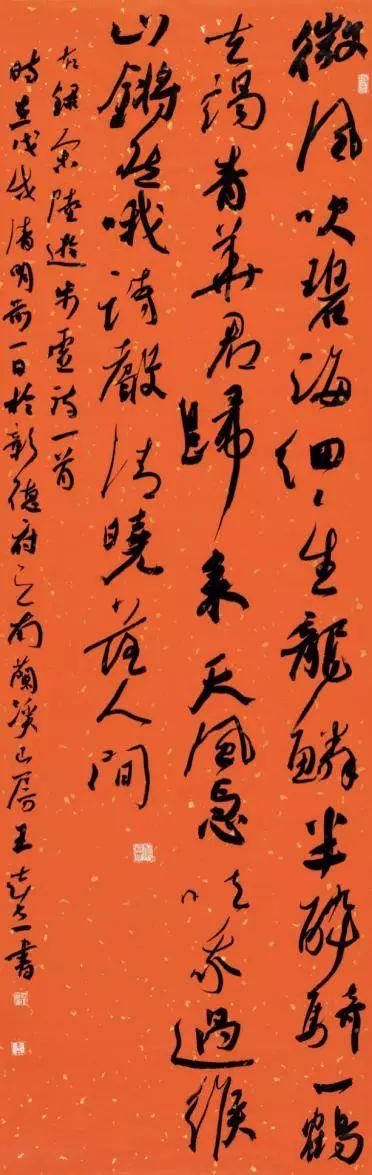 微風吹碧海細々生龍鱗半醉騎一鶴
去謁青華君歸來天風急吹我過緱
山鏘然哦詩聲清曉落人間
右録宋陸遊步虚詩一首
時在戊戌清明前一日於彰德府之南蘭溪山房王書